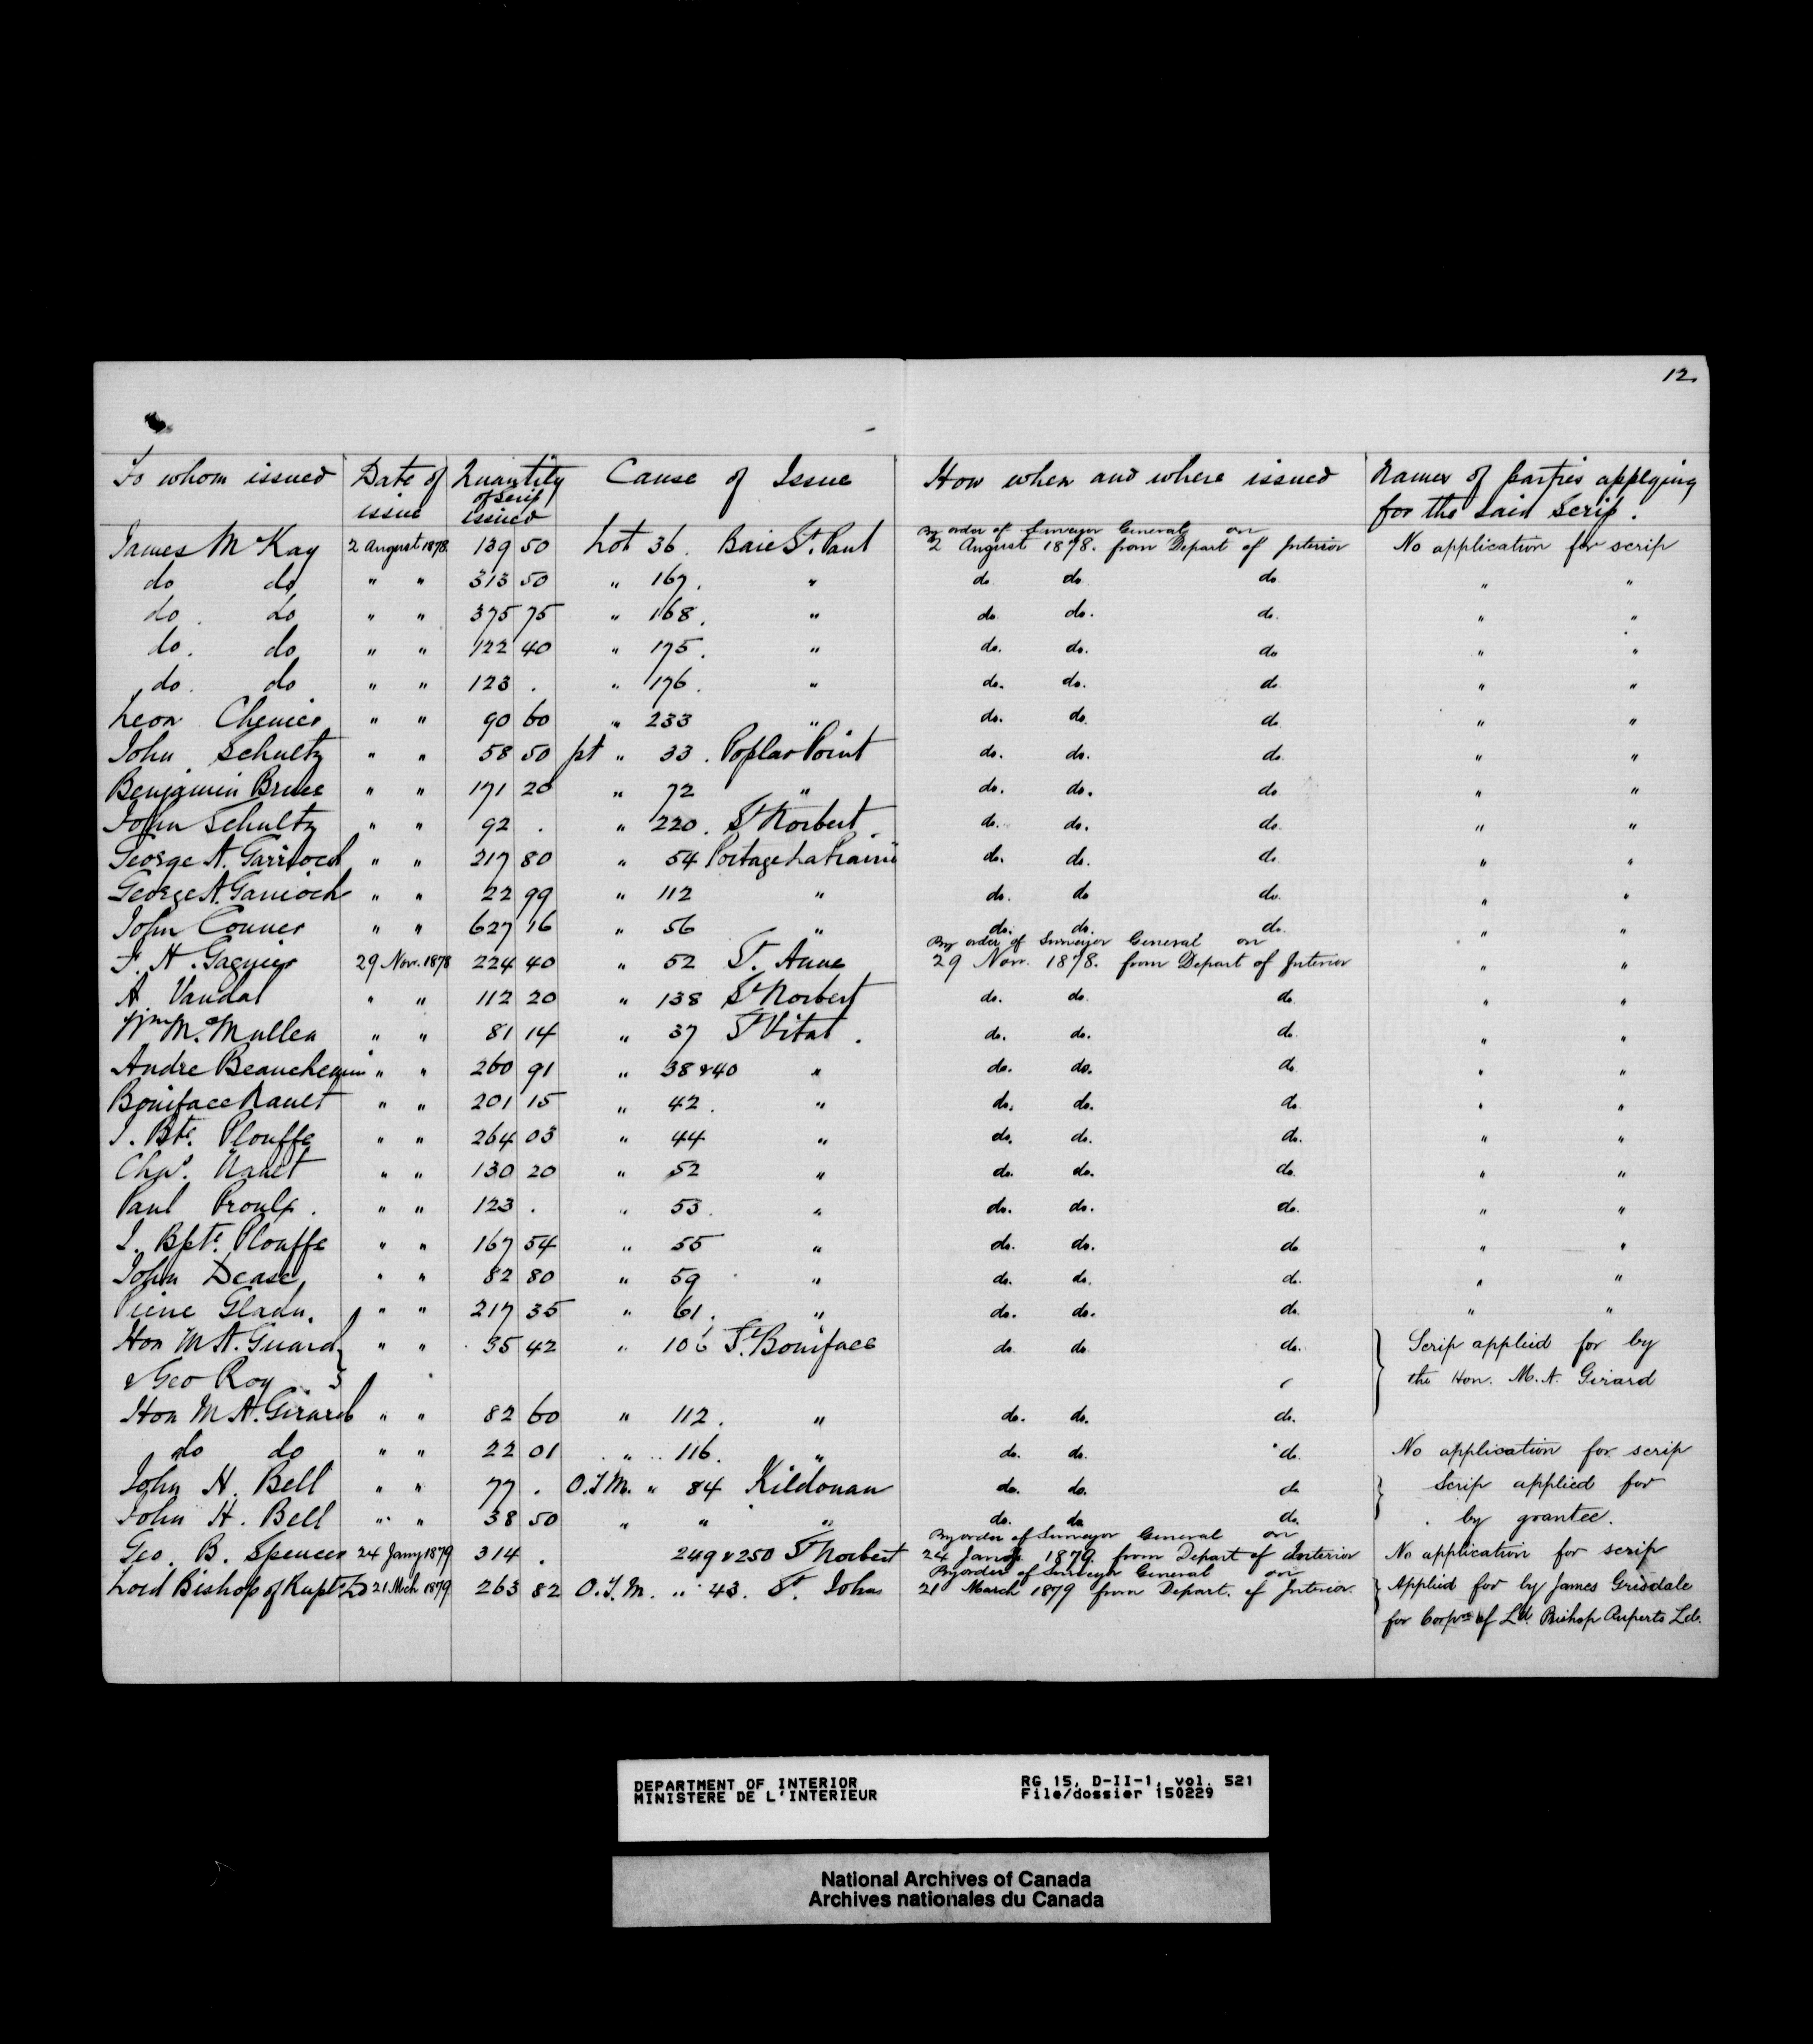 12.
To whom issued | Date of issue | Quantity of Scrip issued | Cause of Issue | How when and where issued | Names of parties applying for the said Scrip.
James McKay | 2 August 1878 | 139 50 | Lot 36. Baie St. Paul | By order of Surveyor General on 2 August 1878. from Depart of Interior | No application for scrip
do do | " " | 313 50 | " 167. " | do do do | " "
do. do | " " | 375 75 | " 168. " | do do. do. | " "
do. do | " " | 122 40 | " 175. " | do. do. do | " "
do. do | " " | 123 . | " 176. " | do. do. do | " "
Leon Chenier | " " | 90 60 | " 233 " | do. do do | " "
John Schultz | " " | 58 50 | pt " 33. Poplar Point | do. do. do | " "
Benjamin Bruce | " " | 171 20 | " 72 " | do. do. do | " "
John Schultz | " " | 92 . | " 220. St Norbert | do. do. do. | " "
George A. Garrioch | " " | 217 80 | " 54 Portage La Prairie | do. do. do. | " "
George A. Garrioch | " " | 22 99 | " 112 " | do. do do. | " "
John Conner | " " | 627 16 | " 56 " | do. do. do. | " "
F. H. Gagnier | 29 Nov. 1878 | 224 40 | " 52 St. Anne | By order of Surveyor General on 29 Nov. 1878. from Depart of Interior | " "
A. Vandal | " " | 112 20 | " 138 St Norbert | do. do do. | " "
Wm McMullen | " " | 81 14 | " 37 St Vital. | do. do. do. | " "
Andre Beauchemin | " " | 260 91 | " 38 & 40 " | do. do. do | " "
Boniface Nault | " " | 201 15 | " 42. " | do. do. do. | " "
J. Bte. Plouffe | " " | 264 03 | " 44 " | do. do. do. | " "
Chas. Nault | " " | 130 20 | " 52 " | do. do. do. | " "
Paul Proulx. | " " | 123 . | " 53. " | do. do. do. | " "
J. Bpte. Plouffe | " " | 167 54 | " 55 " | do. do. do | " "
John Dease, | " " | 82 80 | " 59 " | do. do. do. | " "
Pierre Gladu. | " " | 217 35 | " 61. " | do. do. do. | " "
Hon M A. Girard | " " | 35 42 | " 106 St. Boniface | do do do. | Scrip applied for by
& Geo Roy | the Hon. M. A. Girard
Hon M A. Girard | " " | 82 60 | " 112. " | do. do. do.
do do | " " | 22 01 | " 116. " | do. do. do. | No application for scrip
John H. Bell | " " | 77 . | O.T.M. " 84 Kildonan | do. do. do | Scrip applied for
John H. Bell | " " | 38 50 | " " " | do. do do. | by grantee.
Geo. B. Spencer | 24 Jany 1879 | 314 . | 249 & 250 St Norbert | By order of Surveyor General on 24 Jany 1879. from Depart of Interior | No application for scrip
Lord Bishop of Rupts Ld | 21 Mch 1879 | 263 82 | O.T.M. " 43. St. Johns | By order of Surveyor General on 21 March 1879 from Depart. of Interior. | Applied for by James Grisdale
for Corpn of Ld. Bishop Ruperts Ld.
DEPARTMENT OF INTERIOR
MINISTERE DE L'INTERIEUR
RG 15, D-II-1, vol. 521
File/dossier 150229
National Archives of Canada
Archives nationales du Canada